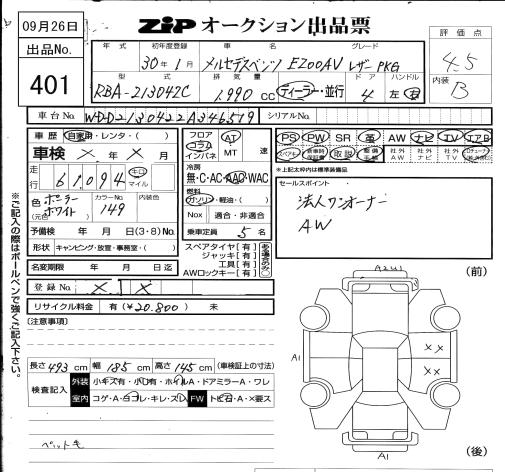 09月26日
ZIP オークション出品票
出品No.
401
評価点
4.5
内装
B
年式 初年度登録 車名 グレード
30年1月 メルセデスベンツ E200AV レザーPKG
型式 排気量 ドア ハンドル
RBA-213042C 1,990 cc ディーラー・並行 4 左 右
車台No. WDD2130422A346519 シリアルNo.
車歴 自家用・レンタ・( )
車検 × 年 × 月
走行 61,094 キロ マイル
色(元色) ポーラーホワイト カラーNo. 149 内装色
予備検 年 月 日(3・8)No.
形状 キャンピング・放置・事務室・( )
名変期限 年 月 日迄
登録No. × ×
リサイクル料金 有(¥20,800) 未
フロア コラム インパネ AT MT 速
冷房
無・C・AC・AAC・WAC
燃料
ガソリン・軽油・( )
Nox 適合・非適合
乗車定員 5 名
スペアタイヤ[有]
ジャッキ[有]
工具[有]
AWロックキー[有]
PS PW SR 革 AW ナビ TV エアB
スペアキー 新車時保証書 取説 整備手帳 社外AW 社外ナビ 社外TV
*上記太枠内は標準装備品
セールスポイント
法人ワンオーナー
AW
(注意事項)
長さ 493 cm 幅 185 cm 高さ 145 cm (車検証上の寸法)
検査記入 外装 小キズ有・小凹有・ホイルA・ドアミラーA・ワレ
室内 コゲ・A・ヨゴレ・キレ・スレ FW トビ石・A・×要ス
ペット毛
※ご記入の際はボールペンで強くご記入下さい。
(前)
A2W1
A1
××
××
A1
(後)